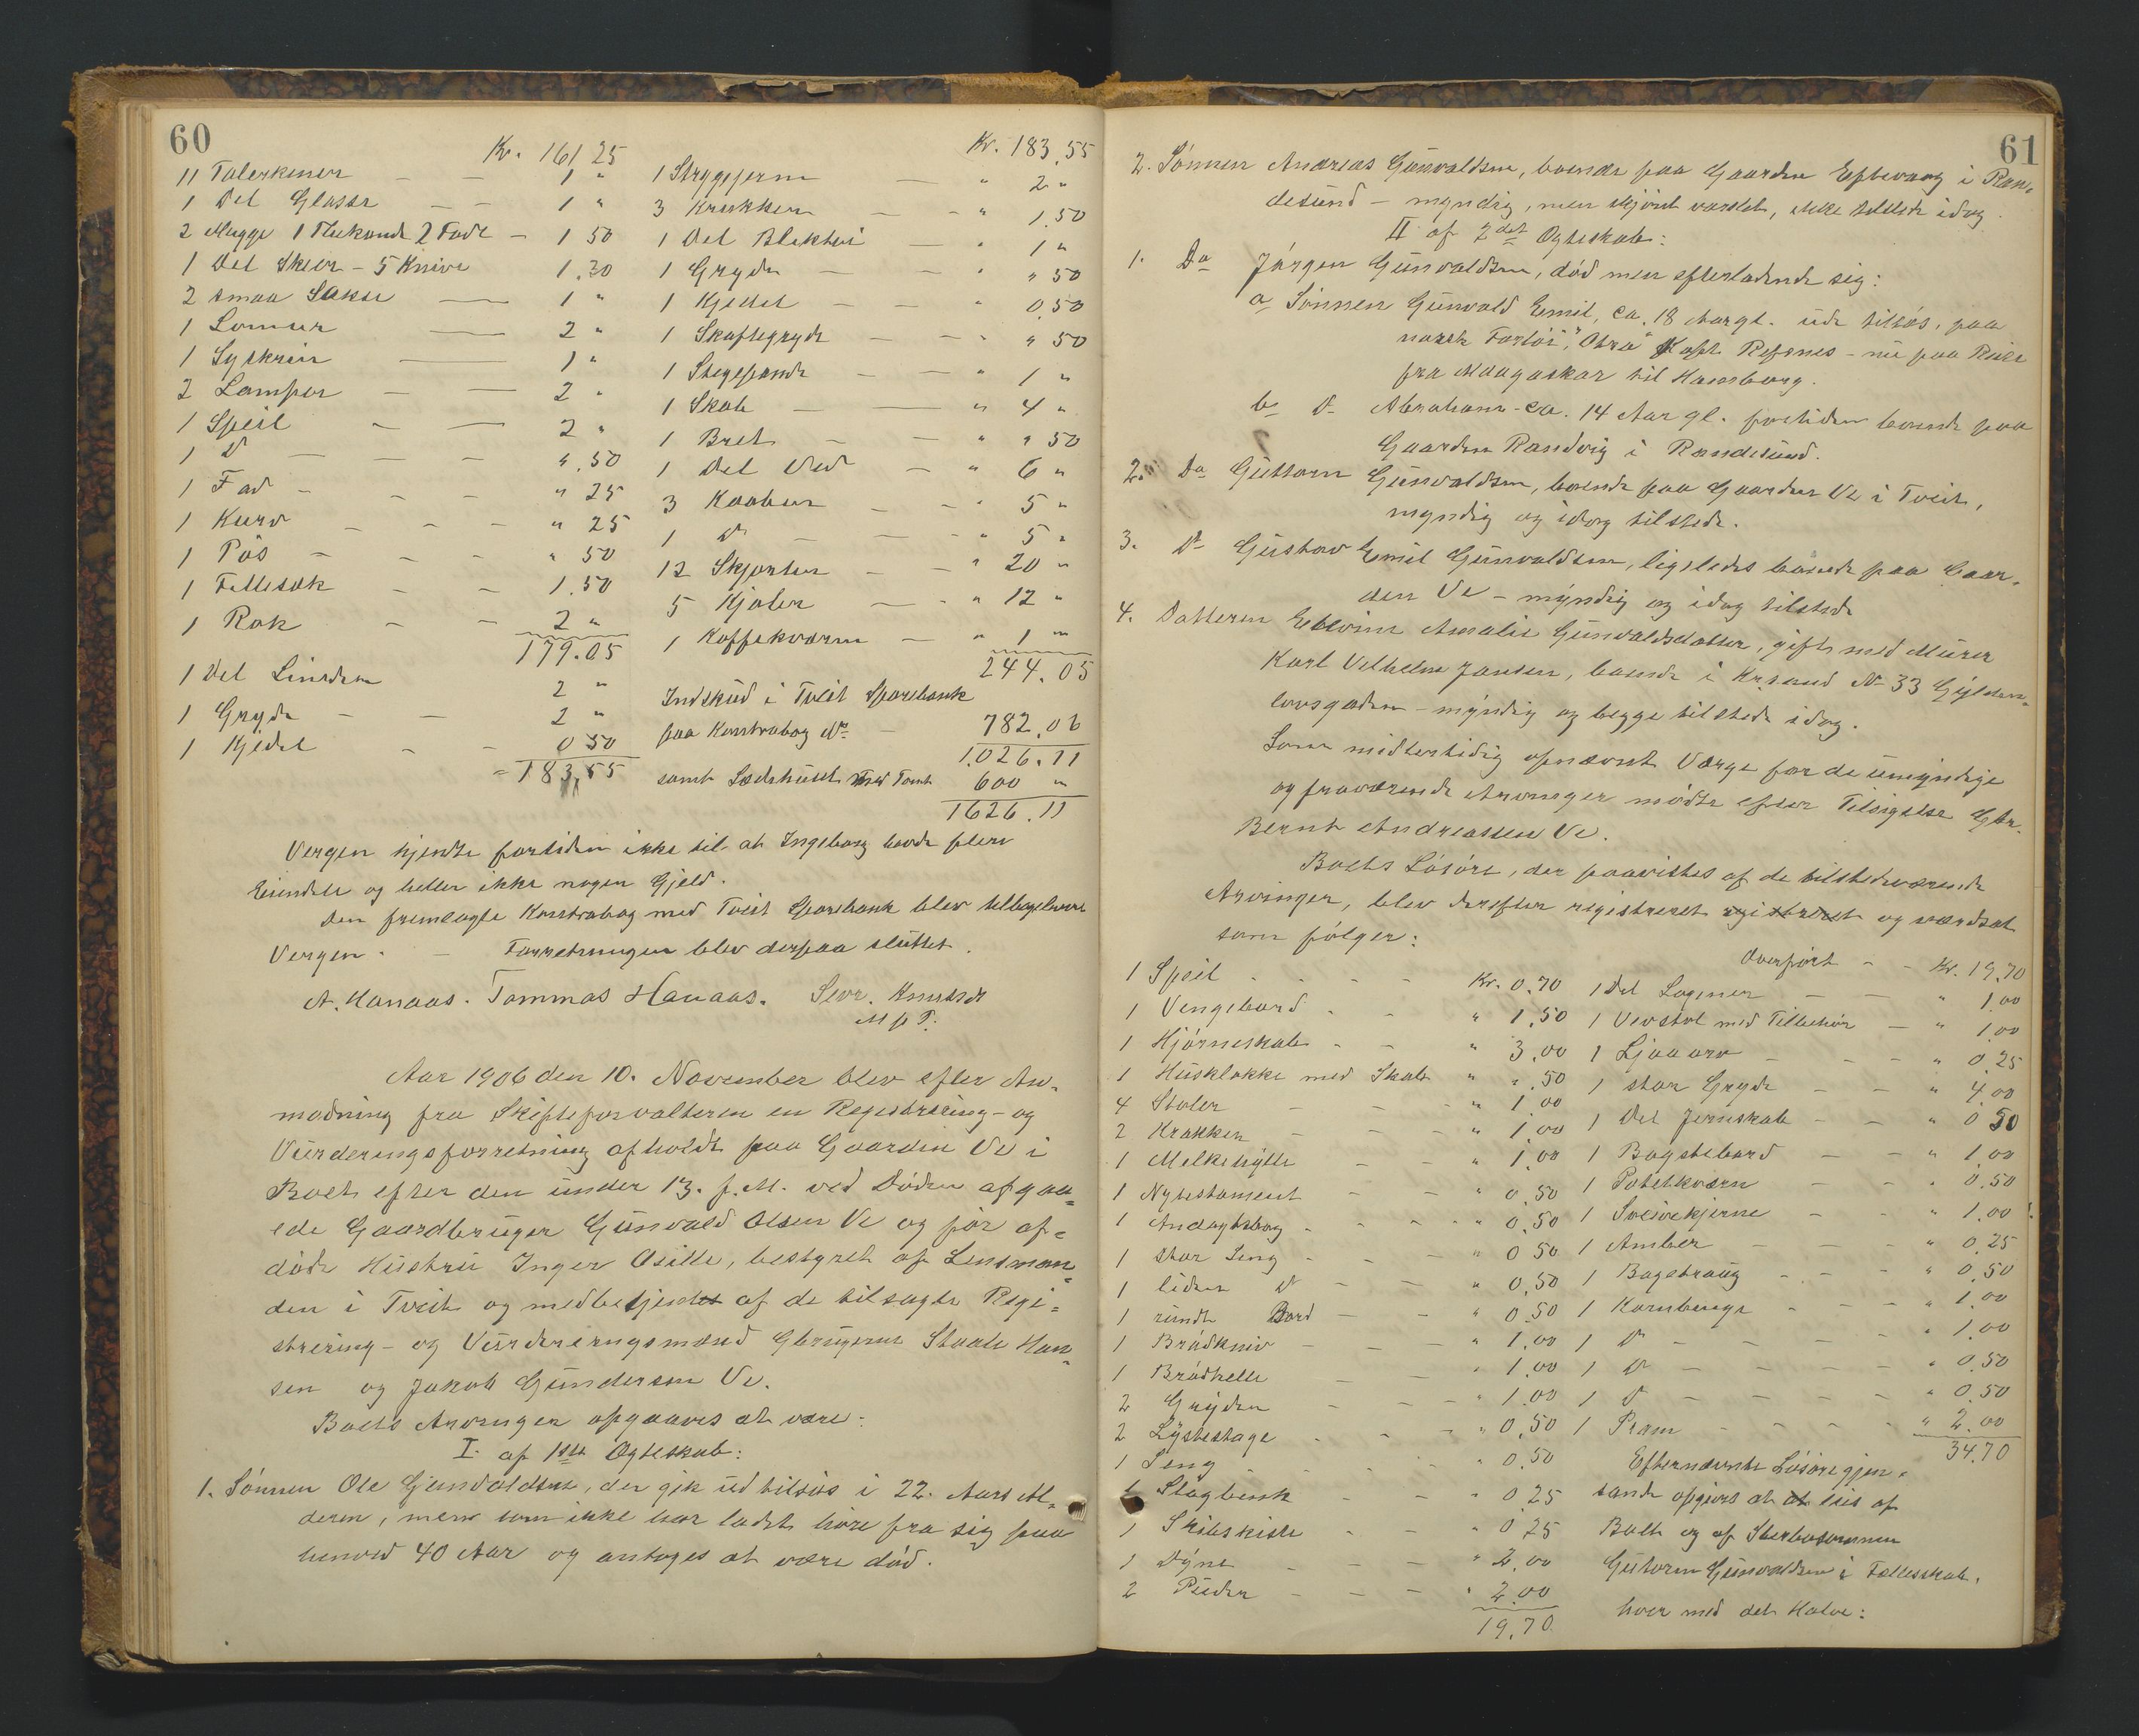 60
Kr. 161 25
11 Talerkener — — 1 "
1 Del Glasse — — 1 "
2 Mugge 1 Thekande 2 Fade — 1 50
1 Del Skeer - 5 Knive 1.30
2 smaa Sakse — 1 "
1 Lommeur — 2 "
1 Syskrin — 1 "
2 Lamper — — 2 "
1 Speil — — 2 "
1 Do — — — " .50
1 Fad — — — " 25
1 Kurv — — — " 25
1 Pös — — — " 50
1 Fellesæk — — 1.50
1 Rok — — 2 "
179.05
1 Del Linden 2 "
1 Gryde — — 2 "
1 Kjedel — — 0 50
183,55
Kr. 183.55
1 Strygejern — " 2 "
3 Krukker — — " 1.50
1 Del Bliktöi — " 1 "
1 Gryde — — " " 50
1 Kjedel — — " 0.50
1 Skaftegryde — — " " 50
1 Stegepande — — " 1 "
1 Skab — — " 4 "
1 Bret — — " " 50
1 Del Ved — " 6 "
3 Kaaber — — " 5 "
1 Do — — — " 5 "
12 Skjorter — — " 20 "
5 Kjoler — — " 12 "
1 Kaffekværn — " 1 "
244.05
Indskud i Tveit Sparebank
paa Kontrabog No — 782.06
1.026.11
samt Sædehuset med Tomt 600 "
1626.11
Vergen kjendte fortiden ikke til at Ingeborg havde flere
Eiendele og heller ikke nogen Gjeld.
Den fremlagte Kontrabog med Tveit Sparebank blev tilbageleveret
Vergen. — Forretningen blev derpaa sluttet.
A. Hanaas. Tommas Hanaas. Sevr. Knutsen
M p P.
Aar 1906 den 10. November blev efter An-
modning fra Skifteforvalteren en Registrering- og
Vürderingsforretning afholdt paa Gaarden Ve i
Boet efter den ünder 13. f.M. ved Döden afgaa-
ede Gaardbrüger Günvald Olsen Ve og för af-
döde Hüstrü Inger Osille, bestyret af Lensman-
den i Tveit og medbetjent af de tilsagte Regi-
strering- og Vürderingsmænd Gbrügerne Staale Han-
sen og Jakob Gündersen Ve.
Boets Arvinger opgaaves at være:
I. af 1ste Ægteskab:
1. Sönnen Ole Günvaldsen, der gik üd tilsös i 22. Aars Al-
deren, men som ikke har ladet höre fra sig paa
henved 40 Aar og antages at være död.
61
2. Sönnen Andreas Günvaldsen, boende paa Gaarden Eftevaag i Ran-
desünd - myndig, men skjönt varslet, ikke tilstede idag.
II af 2det Ægteskab:
1. Do Jörgen Günvaldsen, död men efterladende sig:
a Sönnen Günvald Emil, ca. 18 Aar gl. üde tilsös, paa
norsk Fartöi "Otra" Kapt. Refsnes - nü paa Reise
fra Madagaskar til Hamborg.
b Do Abraham - ca. 14 Aar gl. fortiden boende paa
Gaarden Randvig i Randesünd.
2. Do Güttorm Günvaldsen, boende paa Gaarden Ve i Tveit,
myndig og idag tilstede.
3. Do Güstav Emil Günvaldsen, ligeledes boende paa Gaar-
den Ve - myndig og idag tilstede
4. Datteren Elevine Amalie Günvaldsdatter, gift med Mürer
Karl Vilhelm Jansen, boende i Krsand No 33 Gylden-
lövsgaden - myndig og begge tilstede idag.
Som midlertidig opnævnt Værge for de ümyndige
og fraværende Arvinger mödte efter Tilsigelse Gbr.
Bernt Andreassen Ve.
Boets Lösöre, der paavistes af de tilstedeværende
Arvinger, blev derefter registreret registreret og værdsat
som fölger:
1 Speil - - - - Kr. 0.70
1 Vengebord - - " 1.50
1 Hjörneskab - - " 3.00
1 Hüsklokke med Skab " " .50
4 Stoler - - " 1.00
2 Krakker - - - " 1.00
1 Melkehylle - - " 1.00
1 Nytestament - - " 0.50
1 Andagtsbog - - - " 0.50
1 stor Seng - - - " 0.50
1 liden Do - - - " 0.50
1 ründt Bord - - " 0.50
1 Brödkniv - - - " 1.00
1 Brödhelle - - " 1.00
2 Gryder - - - " 1.00
2 Lysestage - - - " 0.50
1 Seng - - - " 0.50
1 Slagbenk - - " 0.25
1 Skibskiste - - " 0.25
1 Dyne - - - " 2.00
2 Püder - - - " 2.00
19.70
Overfört - - Kr. 19.70
1 Del Lagener — — " 1.00
1 Vevstol med Tilbehör — " 1.00
1 Ljaaorv - - - " 0.25
1 stor Gryde - - " 4.00
1 Del Jernskab - - " 0 50
1 Bagstebord - - " 1.00
1 Potetkværn - - " 0.50
1 Sveivekjerne - - " 1.00
1 Amber - - - " 0.25
1 Bagetraüg - - - " 0.50
1 Kornbinge - - - " 1.00
1 Do - - - - " 1.00
1 Do - - - - " 0.50
1 Do - - - - " 0.50
1 Pram - - - - " 2.00
34.70
Efternævnte Lösöregjen-
stande opgives at at eies af
Boet og af Sterbosönnen
Güttorm Günvaldsen i Fællesskab,
hver med det Halve: